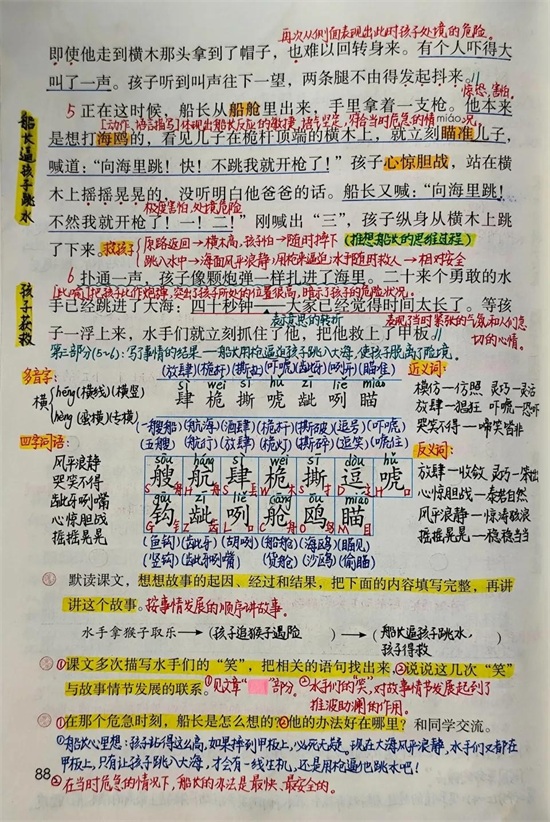 再次从侧面表现出此时孩子处境的危险。
即使他走到横木那头拿到了帽子，也难以回转身来。有个人吓得大
叫了一声。孩子听到叫声往下一望，两条腿不由得发起抖来。//
惊恐、害怕
5 正在这时候，船长从船舱里出来，手里拿着一支枪。他本来
[动作、语言描写]体现出船长反应的敏捷、语气坚定，符合当时危急的情况。
miáo
是想打海鸥的，看见儿子在桅杆顶端的横木上，就立刻瞄准儿子，
喊道：“向海里跳！快！不跳我就开枪了！”孩子心惊胆战，站在横
木上摇摇晃晃的，没听明白他爸爸的话。船长又喊：“向海里跳！
极度害怕、处境危险
不然我就开枪了！一！二！”刚喊出“三”，孩子纵身从横木上跳
了下来。
救孩子
原路返回→横木高，孩子怕→随时摔下
(推想船长的思维过程)
跳入水中→海面风平浪静；用枪来逼迫水手随时救人→相对安全
6 扑通一声，孩子像颗炮弹一样扎进了海里。二十来个勇敢的水
[比喻]把孩子比作炮弹，突出了孩子所处的位置很高，暗示了孩子的危险状况。
手已经跳进了大海：四十秒钟——大家已经觉得时间太长了。等孩
表示意思的转折
表现了当时紧张的气氛和人们急切的心情。
子一浮上来，水手们就立刻抓住了他，把他救上了甲板。//
第三部分(5~6)：写事情的结果—船长用枪逼迫孩子跳入大海，使孩子脱离险境。
船长逼孩子跳水
孩子获救
多音字：
横
héng(横线)(横竖)
hèng(蛮横)(专横)
(放肆)(桅杆)(撕扯)(吓唬)(龇牙)(咧开)(瞄准)
sì wéi sī hǔ zī liě miáo
肆 桅 撕 唬 龇 咧 瞄
近义词：
模仿—仿照 灵巧—灵活
放肆—猖狂 吓唬—恐吓
哭笑不得—啼笑皆非
(一艘船)(航海)(酒肆)(桅杆)(撕破)(逗号)(吓唬)
(五艘)(航行)(放肆)(桅灯)(撕碎)(逗笑)(唬住)
四字词语：
风平浪静
哭笑不得
龇牙咧嘴
心惊胆战
摇摇晃晃
sōu háng sì wéi sī dòu hǔ
艘 航 肆 桅 撕 逗 唬
gōu zī liě cāng ōu miáo
钩 龇 咧 舱 鸥 瞄
(鱼钩)(龇牙)(胡咧)(船舱)(海鸥)(瞄见)
(竖钩)(龇牙咧嘴)(货舱)(沙鸥)(偷瞄)
反义词：
放肆—收敛 灵巧—笨拙
心惊胆战—泰然自若
风平浪静—惊涛骇浪
摇摇晃晃—稳稳当当
默读课文，想想故事的起因、经过和结果，把下面的内容填写完整，再讲
讲这个故事。按事情发展的顺序讲故事。
水手拿猴子取乐→(孩子追猴子遇险)→(船长逼孩子跳水，孩子得救)
①课文多次描写水手们的“笑”，把相关的语句找出来，②说说这几次“笑”
与故事情节发展的联系。①见文章“ ”部分。②水手们的“笑”，对故事情节发展起到了
推波助澜的作用。
①在那个危急时刻，船长是怎么想的？②他的办法好在哪里？和同学交流。
①船长心里想：孩子站得这么高，如果摔到甲板上，必死无疑。现在大海风平浪静，水手们又都在
甲板上，只有让孩子跳入大海，才会有一线生机，还是用枪逼他跳水吧！
②在当时危急的情况下，船长的办法是最快、最安全的。
88